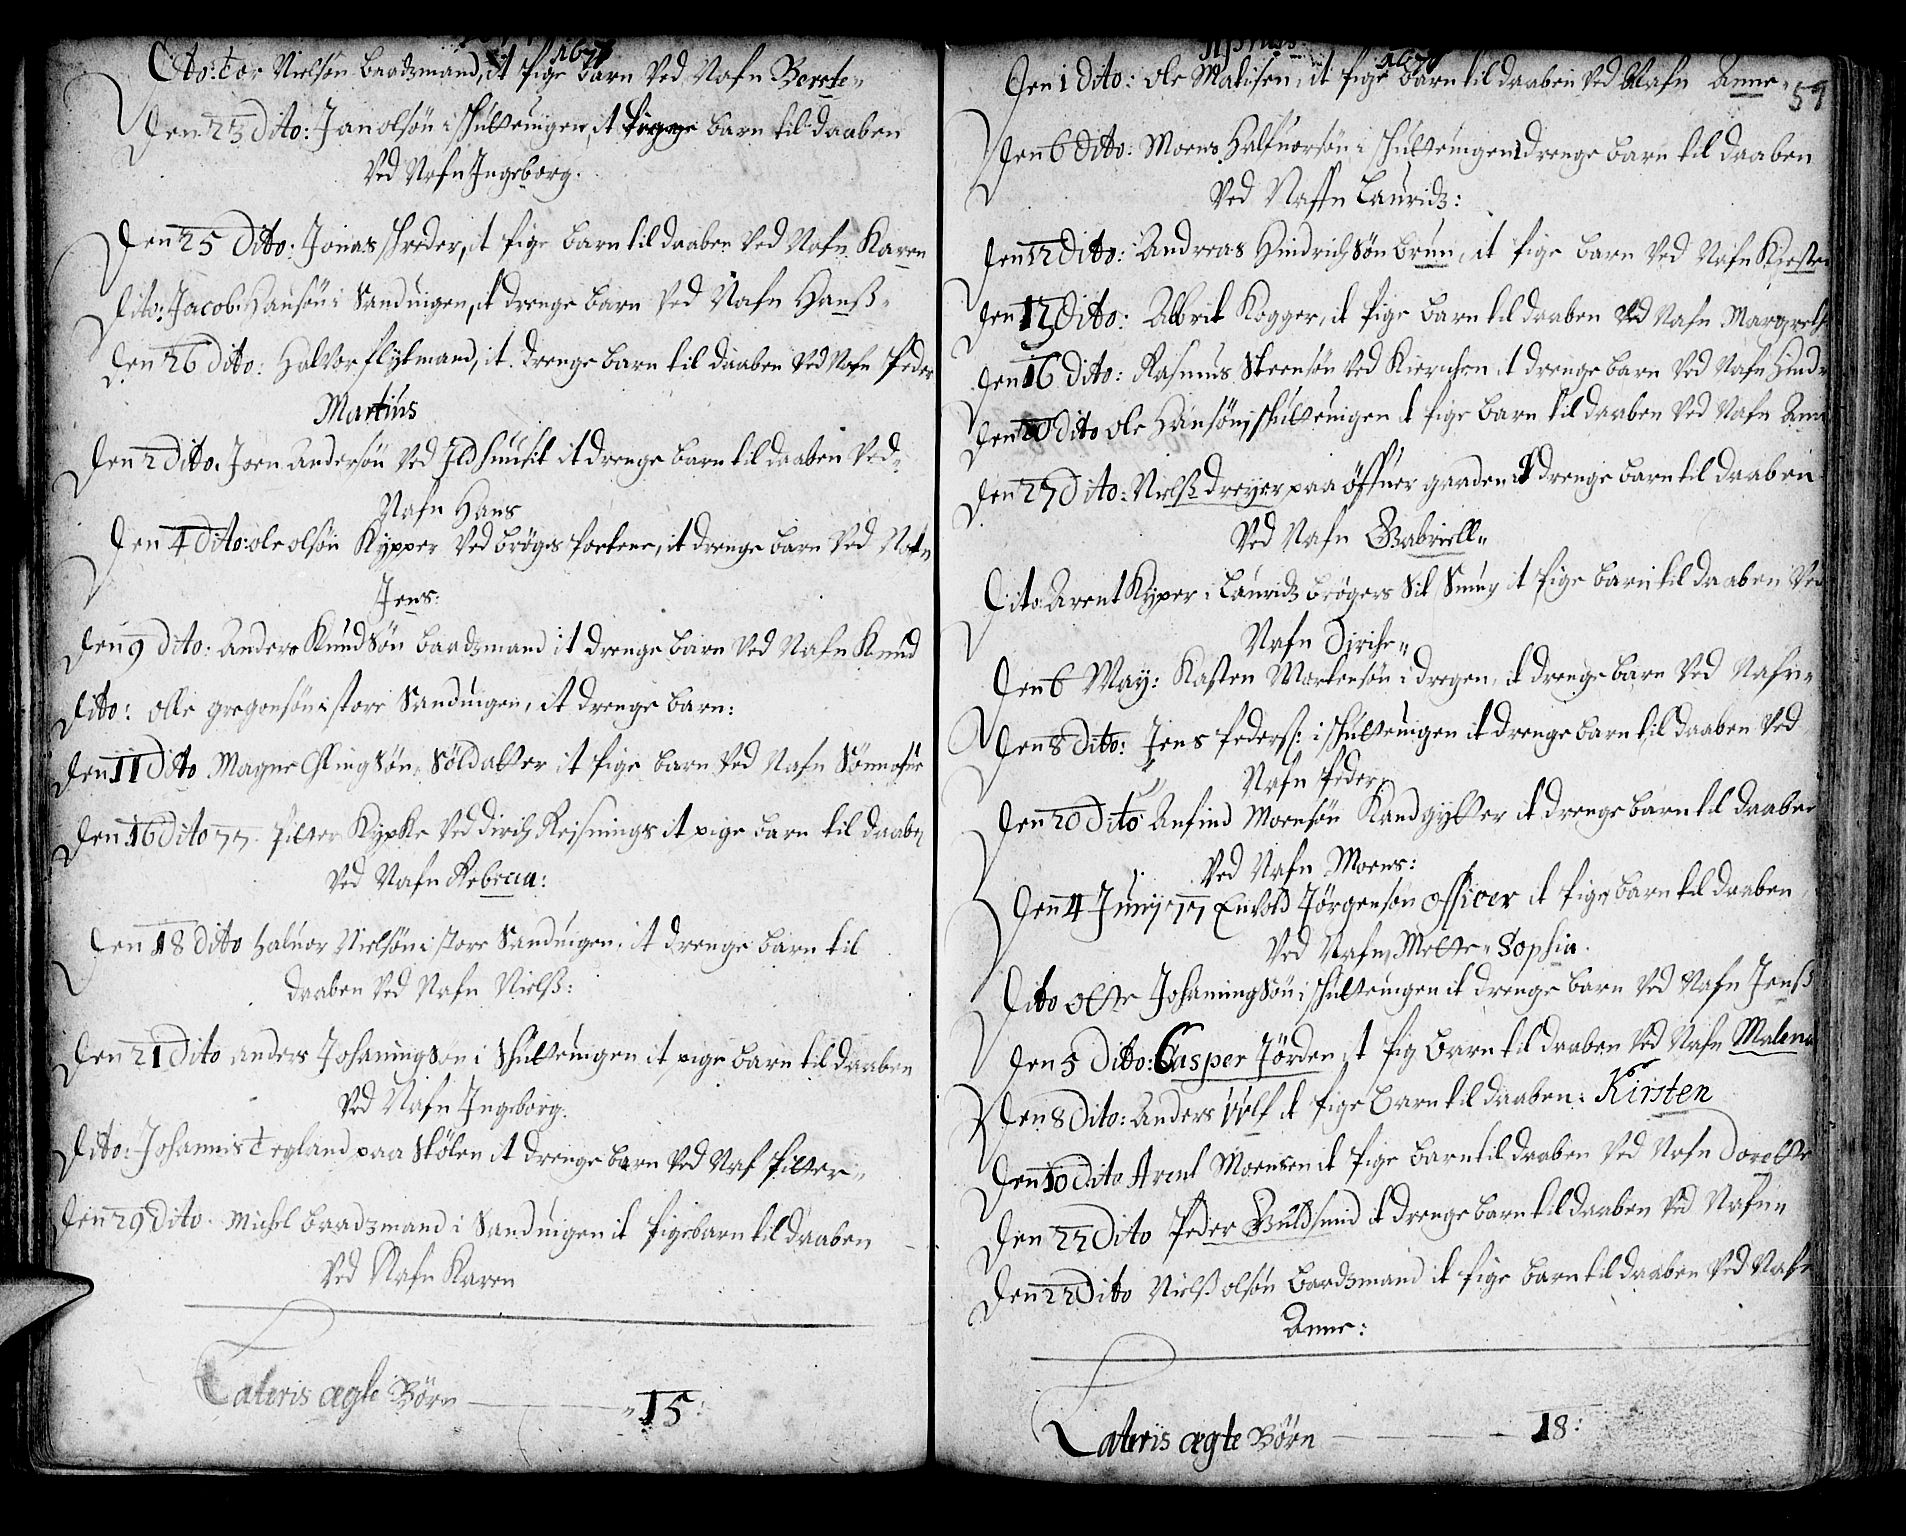 1677
Dito: Tor Nielsøn baadzmand, it pige barn Ved Nafn Berete
Den 23 Dito: Jan olsøn i skulteuigen, it pige barn til daaben
Ved Nafn Ingeborg.
Den 25 Dito: Jonas skreder, it pige barn til daaben Ved Nafn Karen
Dito: Jacob Hansøn i Sanduigen, it drenge barn Ved Nafn Hanß
Den 26 dito: Halvor flytmand, it drenge barn til daaben Ved Nafn Peder
Martius
Den 2 Dito. Joen Andersøn Ved Ildhuusit it drenge barn til daaben Ved
Nafn Hans
Den 4 Dito: ole olsøn Kypper Ved brøgers it drenge barn Ved Nafn
Jens:
Den 9 dito: Anders Knudsøn baadzmand it drenge barn Ved Nafn Knud
Dito: olle gregorsøn i store Sanduigen, it drenge barn:
Den 11 Dito Magne Søldatter it pige barn Ved Nafn
Den 16 Dito 77. Pitter Kypke Ved dirich Reisnings it pige barn til daaben
Ved Nafn Rebecca:
Den 18 dito Haluor Nielsøn i store Sanduigen, it drenge barn til
daaben Ved Nafn Nielß:
Den 21 Dito anders Johaningsøn i Skulteuigen it pige barn til daaben
Ved Nafn Ingeborg.
Dito: Johannis Tegland paa Skolen it drenge barn Ved Naf Pitter
Den 29 Dito. Michel baadzmand i Sanduigen it pigebarn til daaben
Ved Nafn Karen
Lateris ægte Børn 15:
Aprilis 1677
59
Den 1 Dito: ole Matisen, it pige barn til daaben Ved Nafn Anne
Den 6 Dito: Moens Halfuorsøn i skulteuigen 1 drenge barn til daaben
Ved Naffn Lauridz:
Den 12 Dito: Andreas Hindrichsøn brun, it pige barn Ved Nafn Kirsten
Den 13 Dito: Albrit Kogger, it pige barn til daaben Ved Nafn Margret
Den 16 Dito: Rasmus Steensøn Ved Kierchen it drenge barn Ved Nafn Hindr
Den 20 Dito ole Hansøn i skulteuigen it pige barn til daaben Ved Nafn Anne
Den 27 Dito: Nielß dreyer paa öffuer gaarden it drenge barn til daaben
Ved Nafn Gabriell
Dito Arent Kyper i Lauridz brøgers it pige barn til daaben Ved
Nafn Dirche
Den 6 May: Kasten Mortensøn i dregen, it drenge barn Ved Nafn
Den 8 Dito: Jens Peders: i skulteuigen it drenge barn til daaben Ved
Nafn Peder
Den 20 Dito Anfind Moensøn Kandgytter it drenge barn til daaben
Ved Nafn Moens:
Den 4 Juny 77 Enuold Jørgensøn officer it pige barn til daaben
Ved Nafn Mette Sophia.
Dito Otte Johaningsøn i skulteuigen it drenge barn Ved Nafn Jenß
Den 5 Dito: Casper Jörden it pig barn til daaben Ved Nafn Malena
Den 8 Dito: Anders Vlf it pige barn til daaben: Kirsten
Den 10 Dito Arent Moensen it pige barn til daaben Ved Nafn Dorette
Den 22 Dito Peder Guldsmid it drenge barn til daaben Ved Nafnn
Den 22 Dito Nielß olsøn baadzmand it pige barn til daaben Ved Nafn
Anne:
Lateris ægte Børn 18: